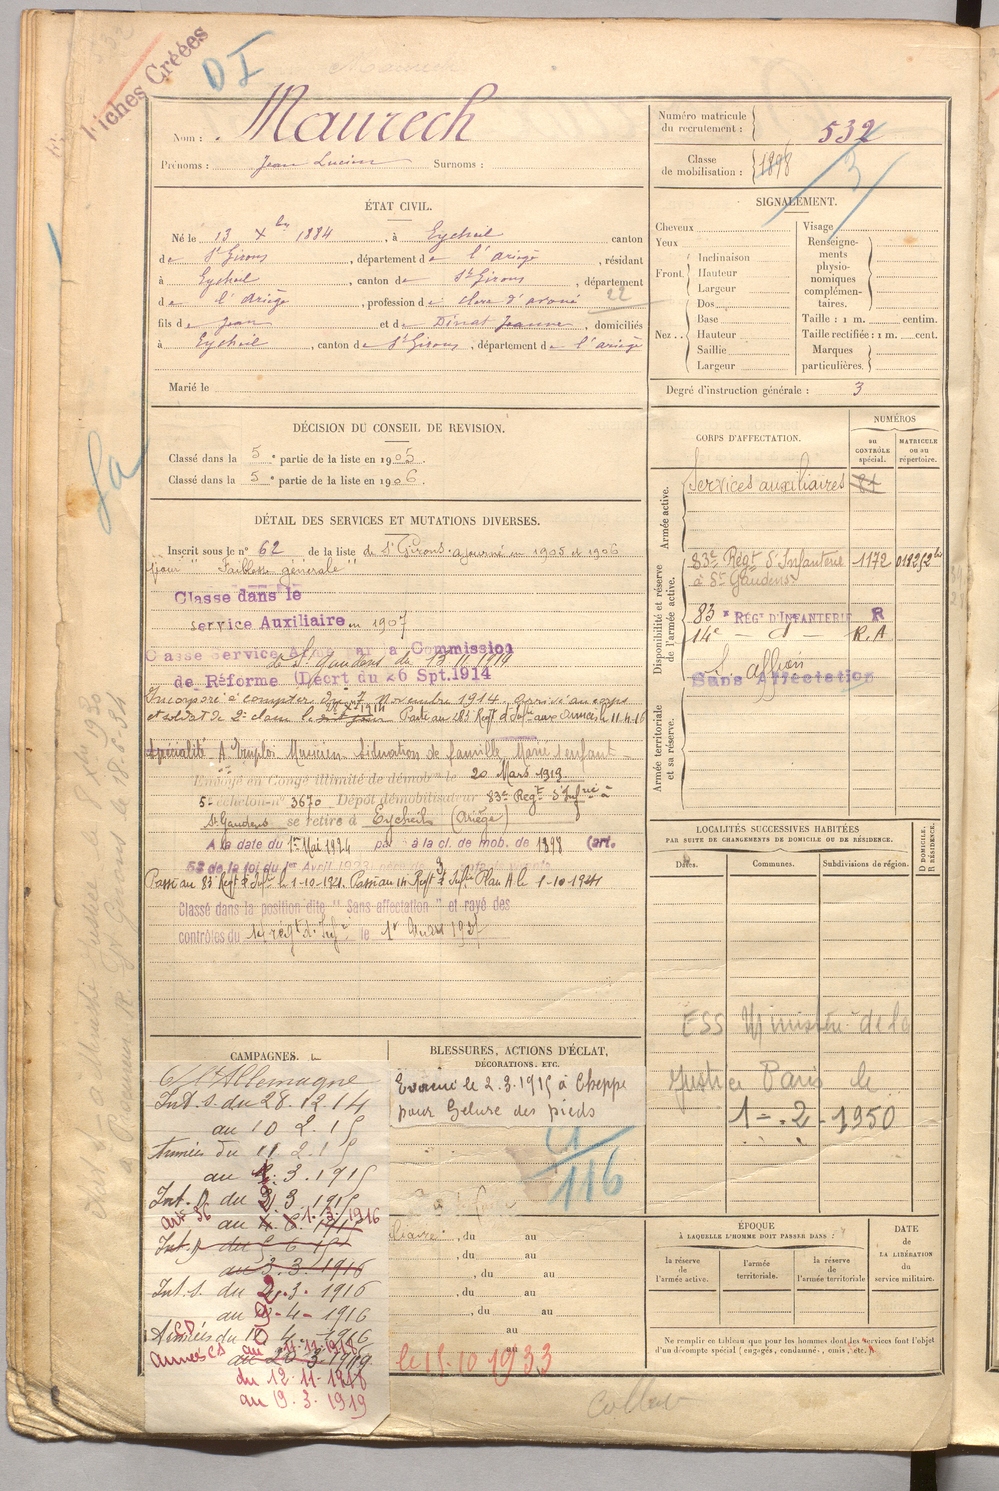 Fiches Créées
D I
Nom : Maurech
Prénoms : Jean Lucien Surnoms :
Numéro matricule du recrutement : 532
Classe de mobilisation : 1898
3
ÉTAT CIVIL.
Né le 13 Xbre 1884, à Eycheil canton
de St Girons, département de l'ariège, résidant
à Eycheil, canton de St Girons, département
de l'ariège, profession de clerc d'avoué
22
fils de Jean et de Dinat Jeanne, domiciliés
à Eycheil, canton de St Girons, département de l'ariège
Marié le
SIGNALEMENT.
Cheveux
Yeux
Front. Inclinaison
Hauteur
Largeur
Nez. Dos
Base
Hauteur
Saillie
Largeur
Visage
Renseignements physionomiques complémentaires.
Taille : 1 m. centim.
Taille rectifiée : 1 m. cent.
Marques particulières.
Degré d'instruction générale : 3
DÉCISION DU CONSEIL DE REVISION.
Classé dans la 5e partie de la liste en 1905.
Classé dans la 5e partie de la liste en 1906.
DÉTAIL DES SERVICES ET MUTATIONS DIVERSES.
Inscrit sous le n° 62 de la liste de St Girons. ajourné en 1905 et 1906
pour "Faiblesse générale"
Classé dans le
service Auxiliaire en 1907
Classé Service Armé par la Commission
de St Gaudens du 13 10 1914
de Réforme (Décrt du 26 Spt.1914
Incorporé à compter du Novembre 1914, arrivé au corps
et soldat de 2e classe le Parti au 283 Regt d'Infie aux Armées le 11.4.16
Spécialité A Emploi Musicien. Situation de famille Marié 1 enfant
Envoyé en Congé illimité de démobon le 20 Mars 1919
5e échelon n° 3670 Dépôt démobilisateur 83e Régt d'Infrie à
St Gaudens se retire à Eycheil (Ariège)
A la date du 1er Mai 1924 à la cl. de mob. de 1898 (art.
58 de la loi du 1er Avril 1923
Passé au 83e Régt d'Infie le 1-10-1921. Passé au 14 Regt d'Infie Plan A le 1-10-1924
Classé dans la position dite "Sans affectation" et rayé des
contrôles du 14e régt d'Infie le 1er
CORPS D'AFFECTATION.
NUMÉROS
au CONTRÔLE spécial.
MATRICULE ou au répertoire.
Armée active.
Services auxiliaires
Disponibilité et réserve de l'armée active.
83e Régt d'Infanterie 1172
à St Gaudens
83e RÉGt D'INFANTERIE R
14e — d — R.A
S. affon
Sans Affectation
Armée territoriale et sa réserve.
LOCALITÉS SUCCESSIVES HABITÉES
PAR SUITE DE CHANGEMENTS DE DOMICILE OU DE RÉSIDENCE.
Dates.
Communes.
Subdivisions de région.
D DOMICILE, R RÉSIDENCE.
ESS Ministère de la
Justice Paris le
1-.2-1950
CAMPAGNES.
C/ l'Allemagne
Int. s. du 28.12.14
au 10 2.15
Armées du 11 2.15
au 3.1915
Int. D du 3 1915
art 36 au 1.3.1916
Int. D du 5 6 15
au 3.3.1916
Int. s. du 2.3.1916
au 4-1916
CD
Armées du 10 4.1916
armées CD au 11-11-1918
au 20 3 1919
du 12.11.1918
au 19.3.1919
BLESSURES, ACTIONS D'ÉCLAT,
DÉCORATIONS, ETC.
Evacué le 2.3.1915 à Cheppe
pour Gelure des pieds
116
, du au
, du au
, du au
, du au
, du au
au
au
le 15.10 1933
ÉPOQUE
À LAQUELLE L'HOMME DOIT PASSER DANS :
la réserve de l'armée active.
l'armée territoriale.
la réserve de l'armée territoriale
DATE DE LA LIBÉRATION du service militaire.
Ne remplir ce tableau que pour les hommes dont les services font l'objet
d'un décompte spécial (engagés, condamné-, omis, etc.)